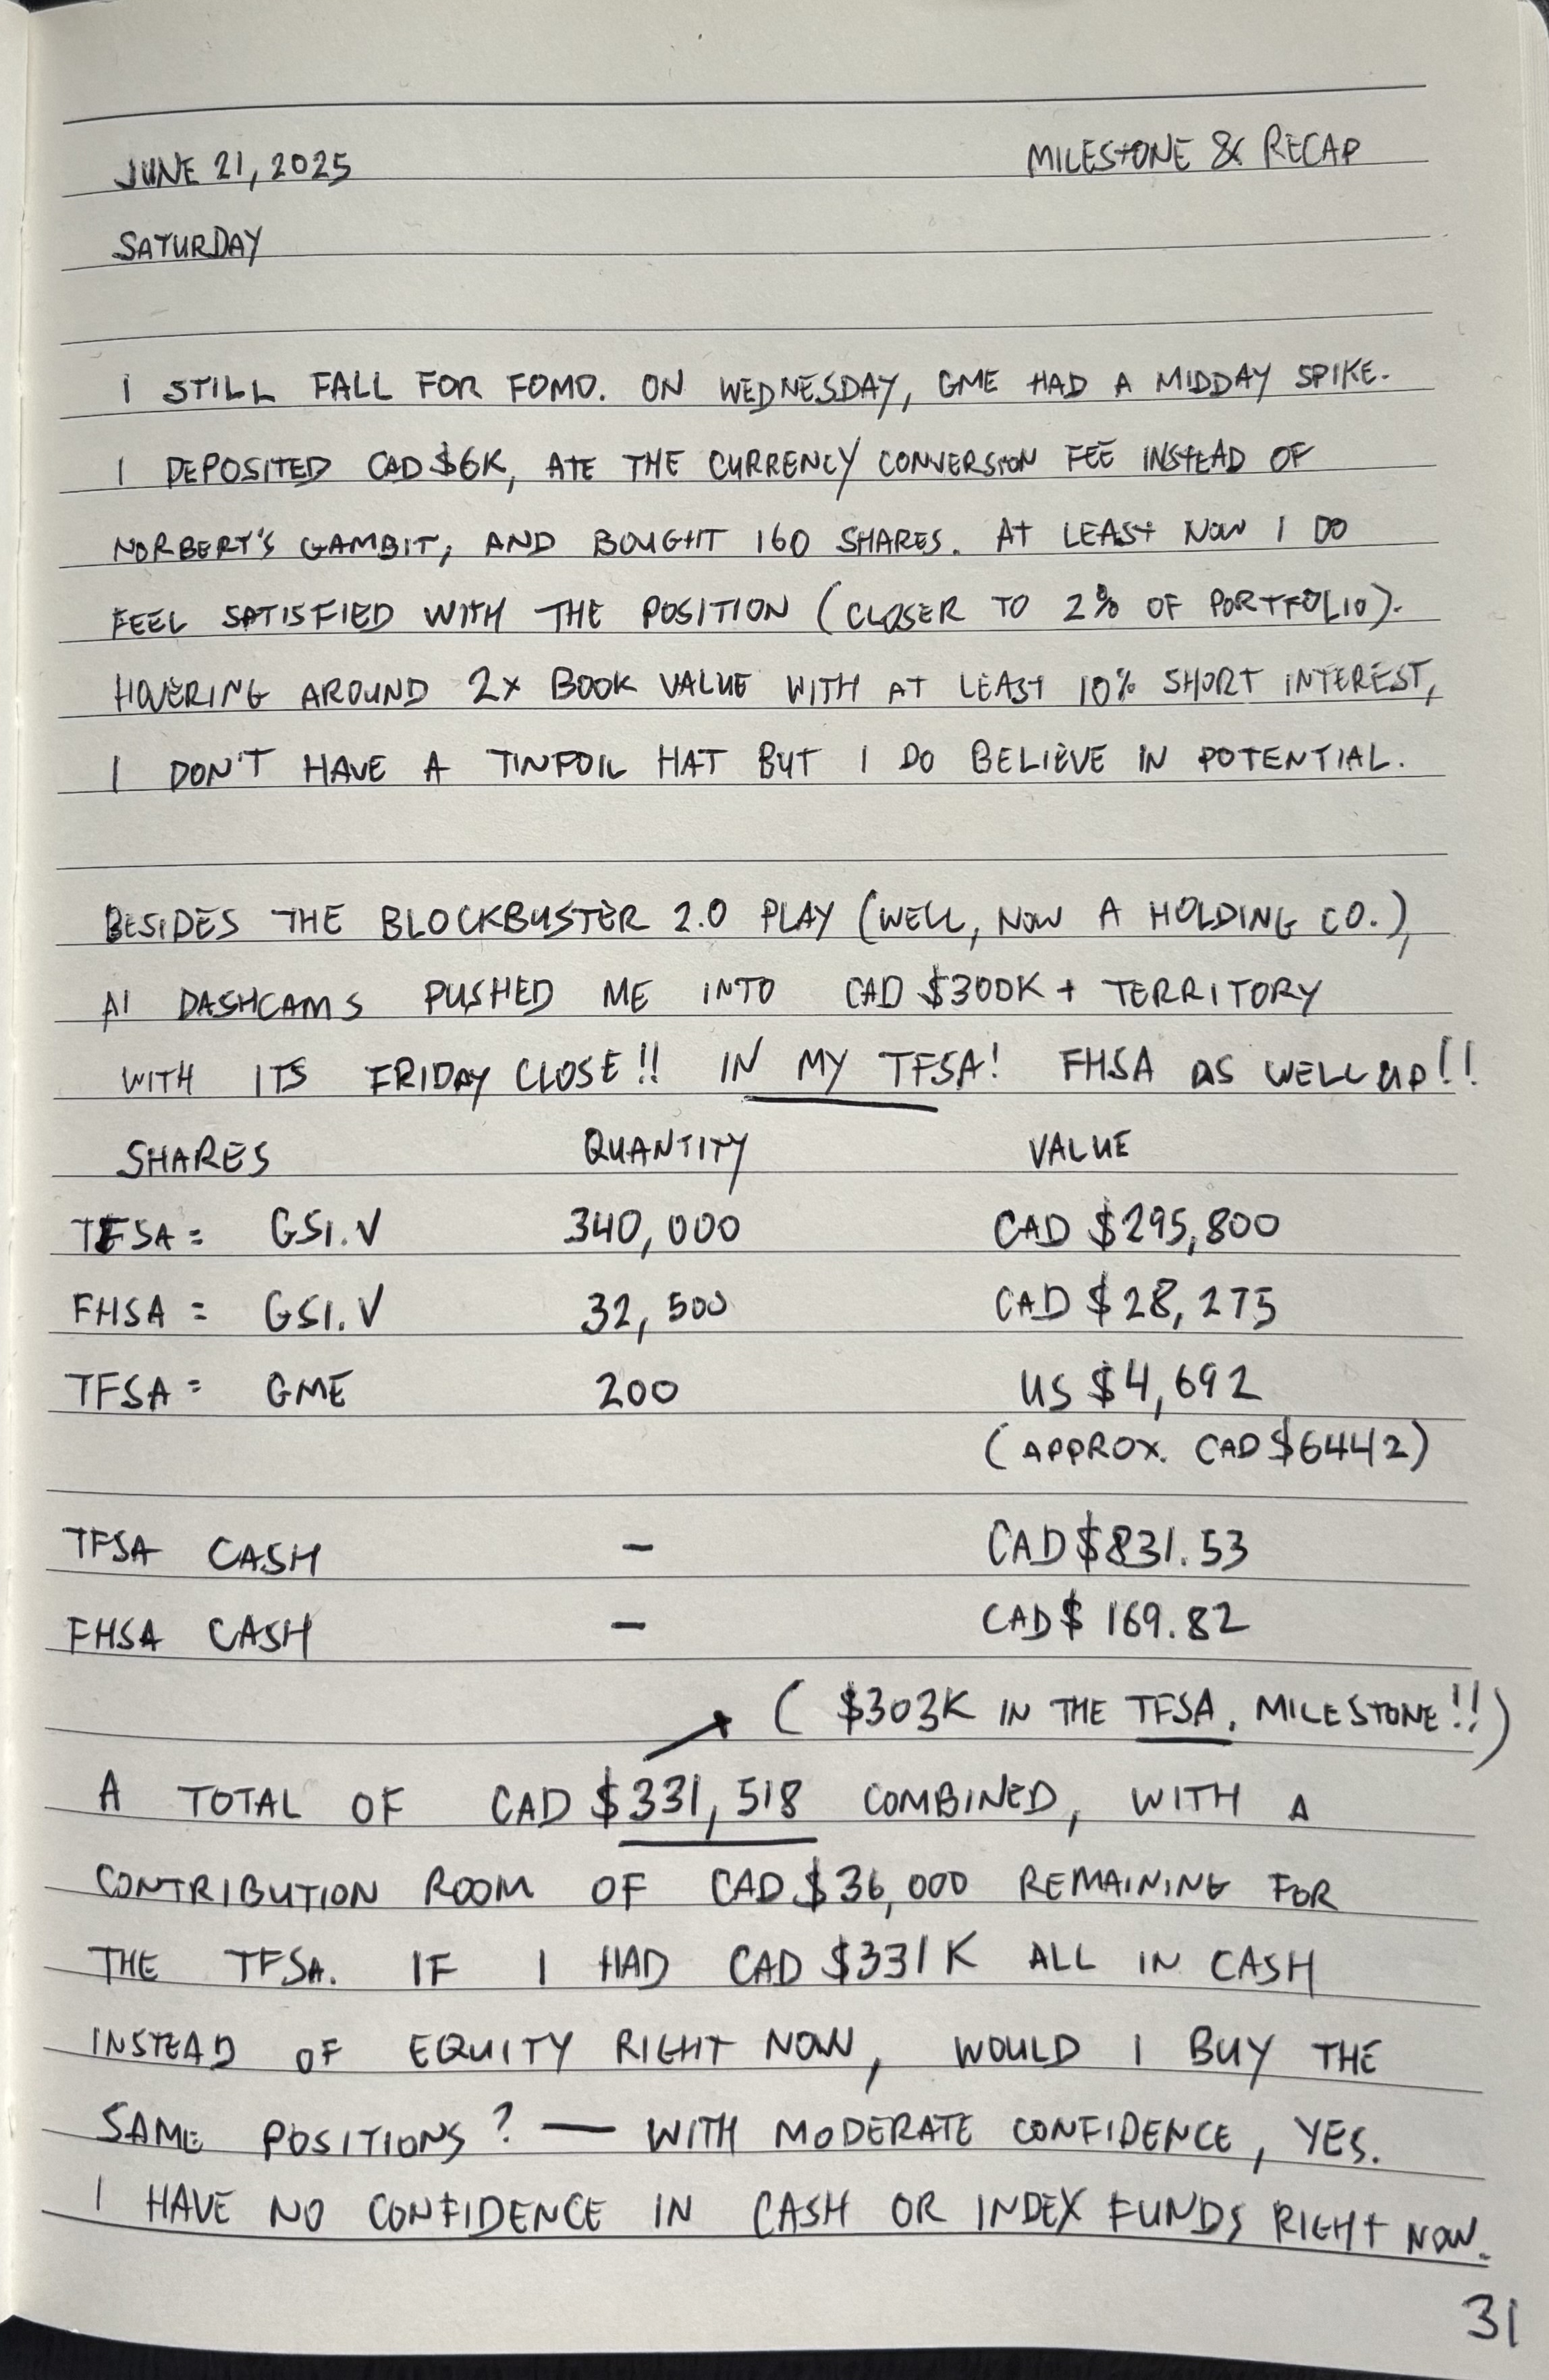 JUNE 21, 2025 MILESTONE & RECAP
SATURDAY
I STILL FALL FOR FOMO. ON WEDNESDAY, GME HAD A MIDDAY SPIKE.
I DEPOSITED CAD $6K, ATE THE CURRENCY CONVERSION FEE INSTEAD OF
NORBERT'S GAMBIT, AND BOUGHT 160 SHARES. AT LEAST NOW I DO
FEEL SATISFIED WITH THE POSITION (CLOSER TO 2% OF PORTFOLIO).
HOVERING AROUND 2X BOOK VALUE WITH AT LEAST 10% SHORT INTEREST,
I DON'T HAVE A TINFOIL HAT BUT I DO BELIEVE IN POTENTIAL.
BESIDES THE BLOCKBUSTER 2.0 PLAY (WELL, NOW A HOLDING CO.),
AI DASHCAMS PUSHED ME INTO CAD $300K + TERRITORY
WITH ITS FRIDAY CLOSE!! IN MY TFSA! FHSA AS WELL UP!!
SHARES QUANTITY VALUE
TFSA = GSI.V 340,000 CAD $295,800
FHSA = GSI.V 32,500 CAD $28,275
TFSA = GME 200 US $4,692
(APPROX. CAD $6442)
TFSA CASH - CAD $831.53
FHSA CASH - CAD $169.82
($303K IN THE TFSA. MILESTONE!!)
A TOTAL OF CAD $331,518 COMBINED, WITH A
CONTRIBUTION ROOM OF CAD $36,000 REMAINING FOR
THE TFSA. IF I HAD CAD $331K ALL IN CASH
INSTEAD OF EQUITY RIGHT NOW, WOULD I BUY THE
SAME POSITIONS? — WITH MODERATE CONFIDENCE, YES.
I HAVE NO CONFIDENCE IN CASH OR INDEX FUNDS RIGHT NOW.
31